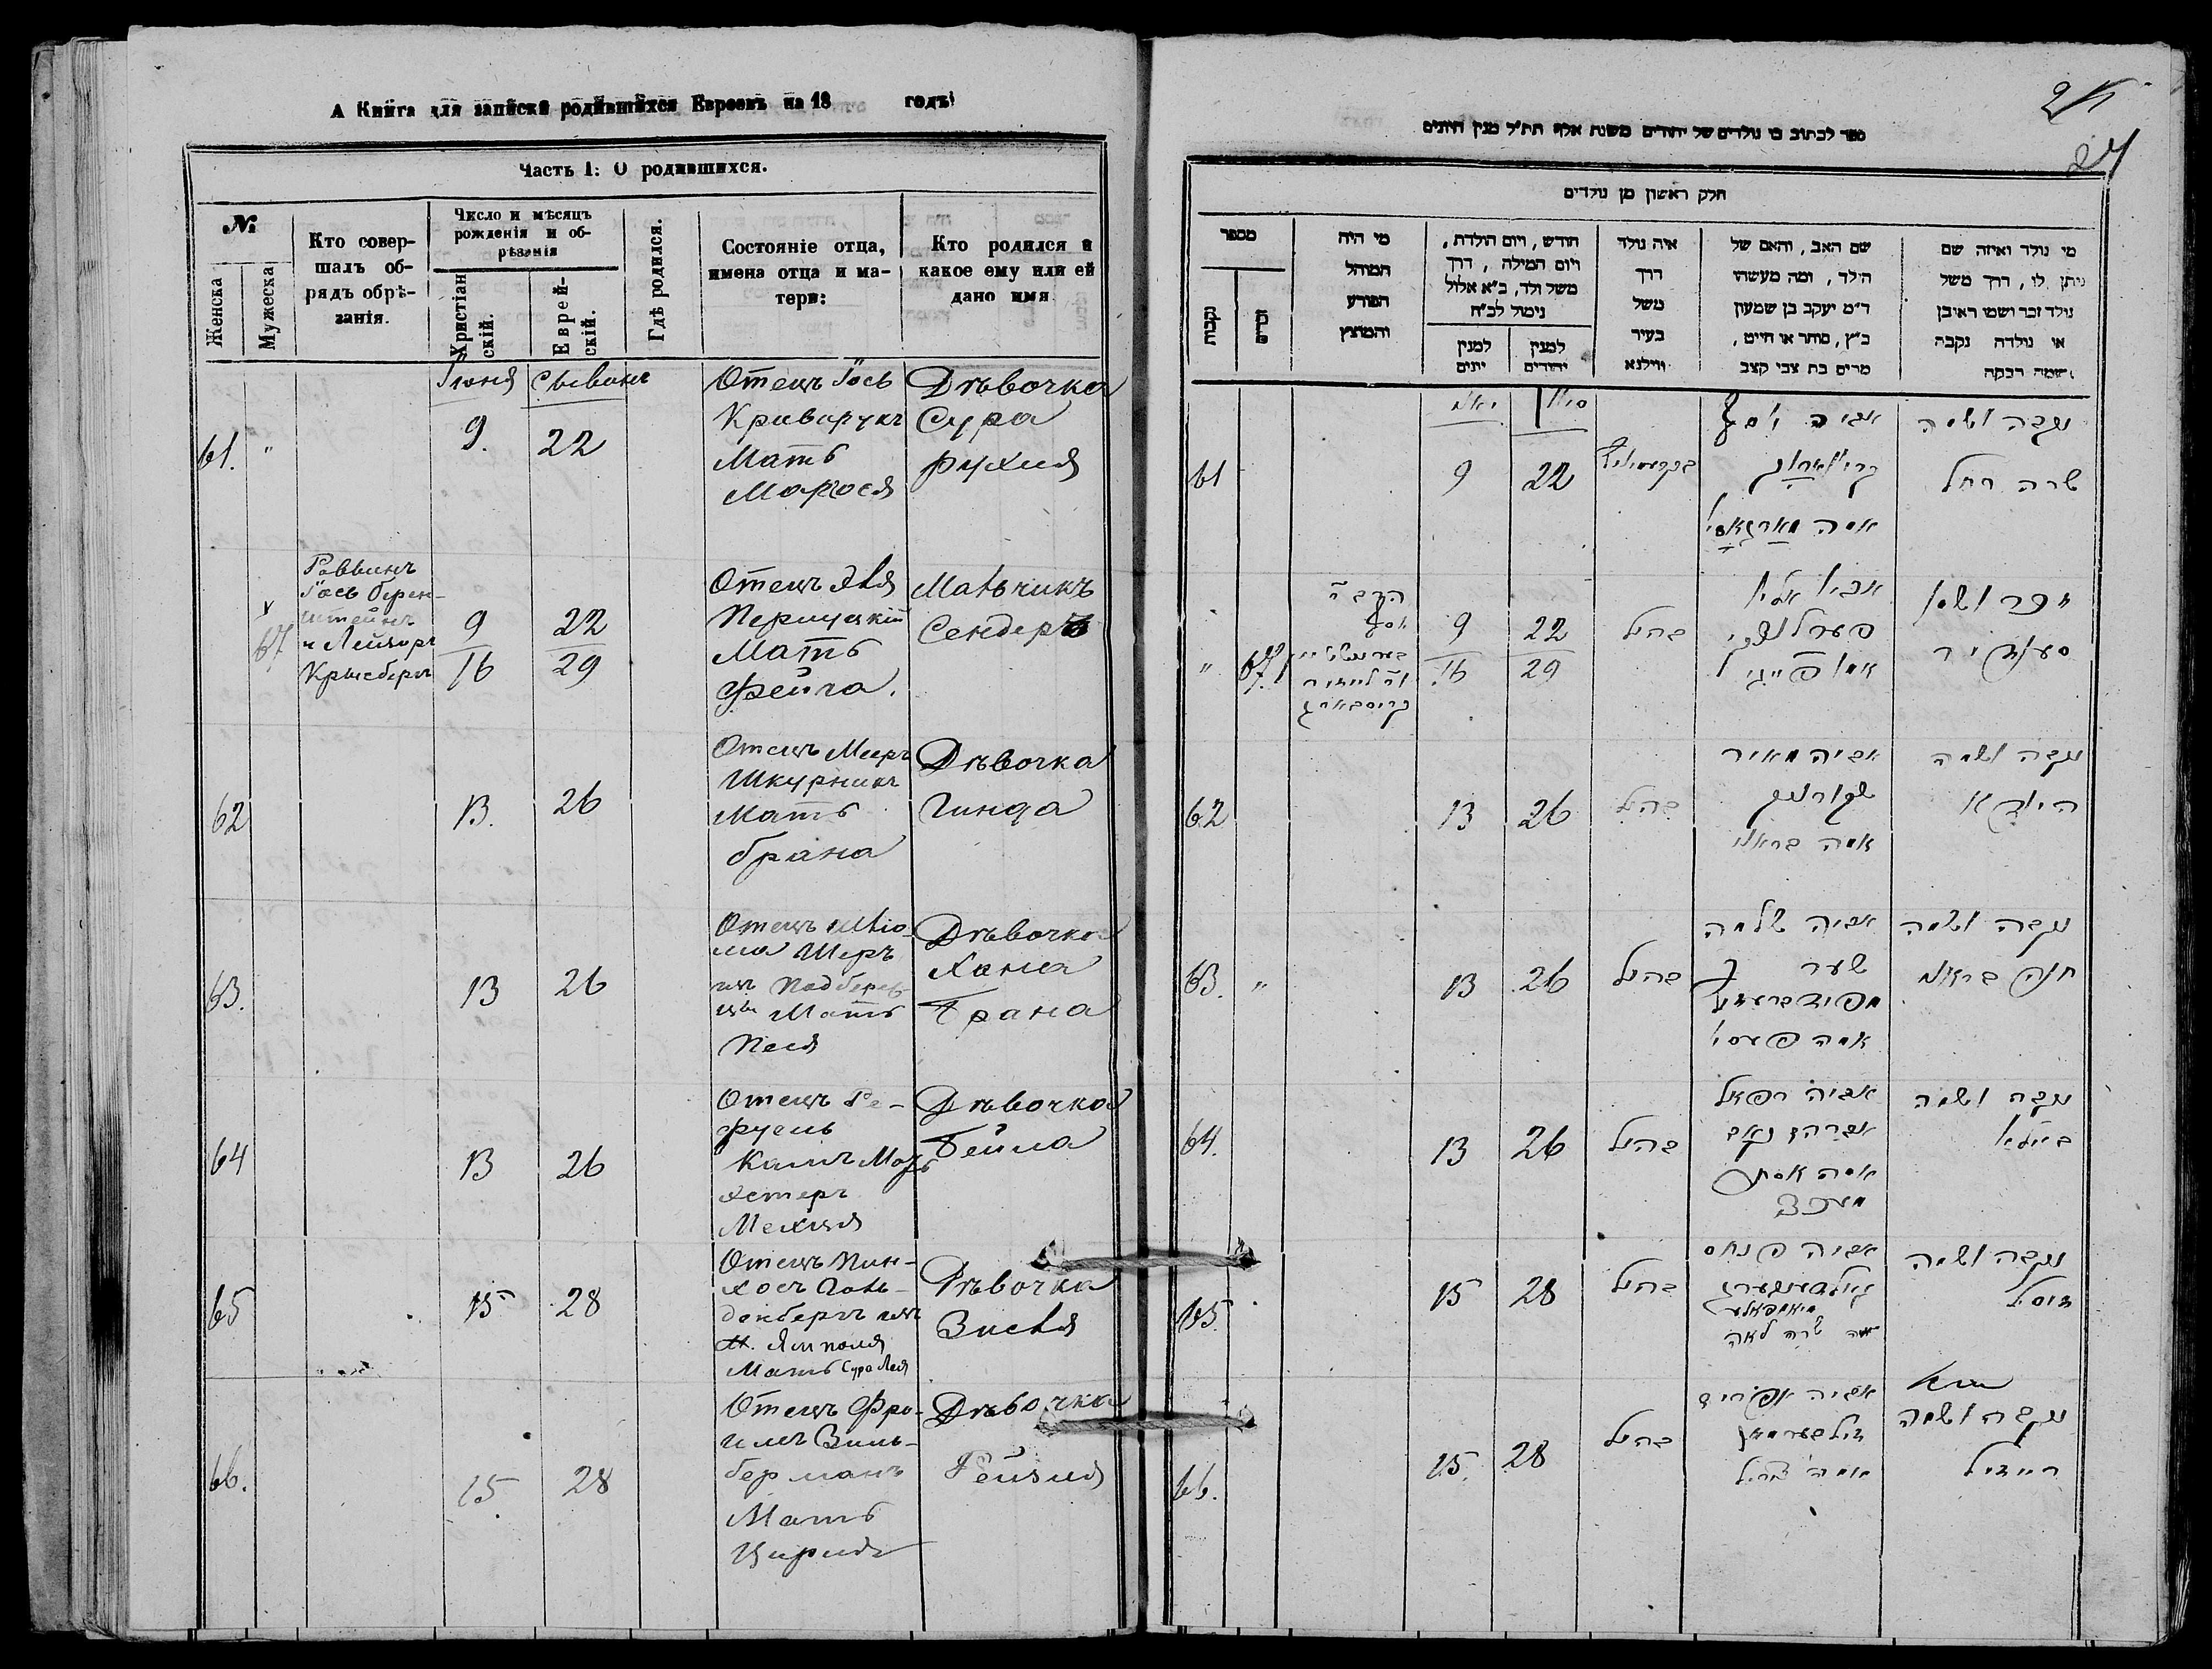 А Книга для записки родившихся Евреевъ на 18 годъ
Часть I: О родившихся.
№
Женска
Мужеска
Кто совер-
шалъ об-
рядъ обрѣ-
занія.
Число и мѣсяцъ
рожденія и об-
рѣзанія
Христіан
скій.
Еврей-
скій.
Гдѣ родился.
Состояніе отца,
имена отца и ма-
тери:
Кто родился и
какое ему или ей
дано имя
Іюня
Сывинъ
61.
"
9.
22
Отецъ Іось
Криворукъ
Мать
Дѣвочка
Сура
Рухля
67
Раввинъ
Іось Берен-
штейнъ
и Лейзоръ
Крисбергъ
9
16
22
29
Отецъ Эля
Мать
Фейга.
Мальчикъ
Сендеръ
62
13.
26
Отецъ Мееръ
Шкурникъ
Мать
Брана
Дѣвочка
Гинда
63.
13
26
Отецъ Шлио-
ма Шеръ
изъ Подберез
Мать
Песя
Дѣвочка
Хана
Брана
64
13
26
Отецъ Ра-
фуель
Кацъ Мать
Эстеръ
Дѣвочка
Бейла
65
15
28
Отецъ Пин-
хосъ Голь-
денбергъ изъ
м. Ямполя
Мать Сура Лея
Дѣвочка
Зисля
66.
15
28
Отецъ Фро-
имъ Зиль-
берманъ
Мать
Цирля
Дѣвочка
Рейзля
24
ספר לכתוב בו נולדים של יהודים משנת אלף תת"ל מנין היונים
חלק ראשון מן נולדים
מספר
נקבות
זכרים
מי היה
המוהל
הפורע
והמוצץ
חודש, ויום הולדת,
ויום המילה, דרך
משל ולד, כ"א אלול
נימול לכ"ח
למנין
יונים
למנין
יהודים
איה נולד
דרך
משל
בעיר
ווילנא
שם האב, והאם של
הילד, ומה מעשהו
ד"מ יעקב בן שמעון
כ"ץ, סוחר או חייט,
מרים בת צבי קצב
מי נולד ואיזה שם
ניתן לו, דרך משל
נולד זכר ושמו ראובן
או נולדה נקבה
ושמה רבקה
סיון
61
9
22
אביה יוסף
נקבה ושמה
שרה רחל
"
67
9
16
22
29
כהנ"ל
אביו אליו
אמו פייגיל
זכר ושמו
סענדיר
62
13
26
כהנ"ל
אביה מאיר
שקורניק
אמה בראני
נקבה ושמה
הינדא
63.
"
13
26
כהנ"ל
אביה שלמה
שער
אמה פעסי
נקבה ושמה
חנה בראנא
64.
13
26
כהנ"ל
אביה רפאל
אמה אסתר
נקבה ושמה
ביילא
65.
15
28
כהנ"ל
אביה פנחס
גולדענבערג
אמה שרה לאה
נקבה ושמה
זיסיל
66.
15.
28
כהנ"ל
אביה אפרים
זילבערמאן
אמה ציריל
נקבה ושמה
רייזיל